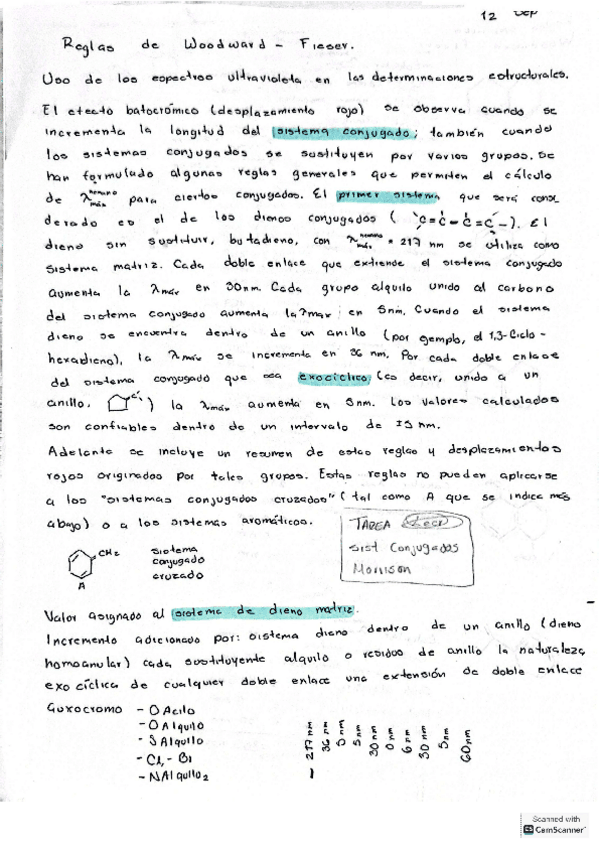 12 Sep
Reglas de Woodward - Fieser.
Uso de los espectros ultravioleta en las determinaciones estructurales.
El efecto batocrómico (desplazamiento rojo) se observa cuando se
incrementa la longitud del sistema conjugado; también cuando
los sistemas conjugados se sustituyen por varios grupos. Se
han formulado algunas reglas generales que permiten el cálculo
de λ hexano máx para ciertos conjugados. El primer sistema que será consi
derado es el de los dienos conjugados ( C=C-C=C- ). El
dieno sin sustituir, butadieno, con λ hexano máx = 217 nm se utiliza como
sistema matriz. Cada doble enlace que extiende el sistema conjugado
aumenta la λmáx en 30nm. Cada grupo alquilo unido al carbono
del sistema conjugado aumenta la λmax en 5nm, Cuando el sistema
dieno se encuentra dentro de un anillo (por ejemplo, el 1,3-Ciclo-
hexadieno), la λmáx se incrementa en 36 nm. Por cada doble enlace
del sistema conjugado que sea exocíclico (es decir, unido a un
anillo, ) la λmáx aumenta en 5nm. Los valores calculados
son confiables dentro de un intervalo de ±5 nm.
Adelante se incluye un resumen de estas reglas y desplazamientos
rojos originados por tales grupos. Estas reglas no pueden aplicarse
a los "sistemas conjugados cruzados" (tal como A que se indica más
abajo) o a los sistemas aromáticos.
TAREA Leer
Sist Conjugados
Morrison
CH2
A
sistema
conjugado
cruzado
Valor asignado al sistema de dieno matriz.
Incremento adicionado por: sistema dieno dentro de un anillo (dieno
homoanular) cada sustituyente alquilo o residos de anillo la naturaleza
exo cíclica de cualquier doble enlace una extensión de doble enlace
Auxocromo - OAcilo
- OAlquilo
- SAlquilo
- Cl, - Br
- NAlquilo2
217 nm
36 nm
5 nm
5 nm
30 nm
0 nm
6 nm
30 nm
5 nm
60 nm
Scanned with
CS CamScanner